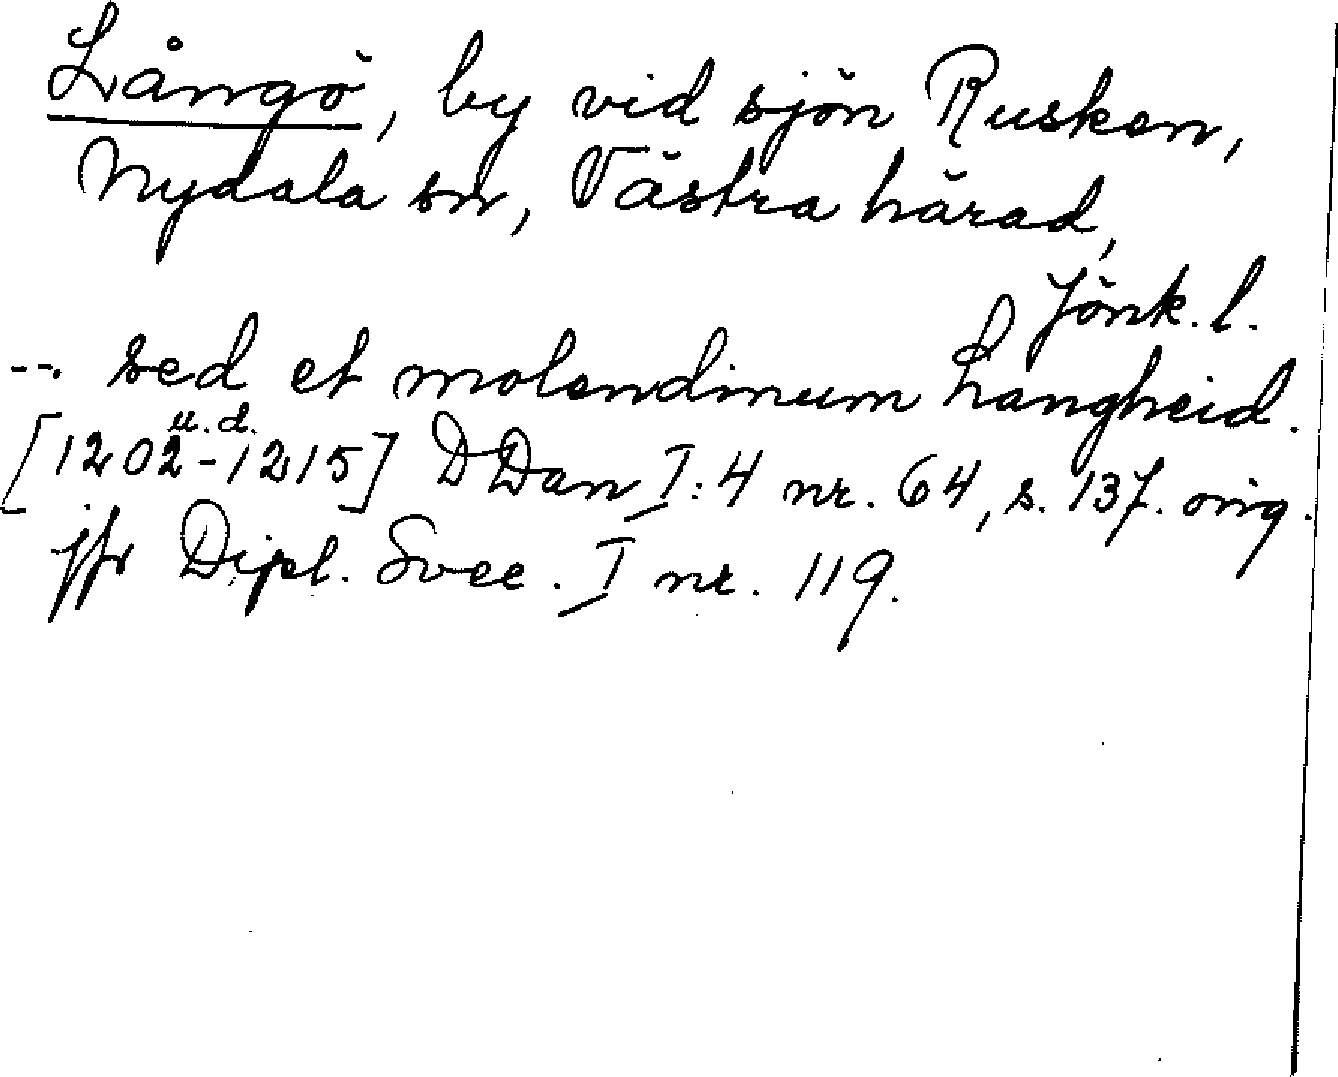 Långö, by vid sjön Rusken,
Nydala sn, Västra härad,
Jönk. l.
--. sed et molendinum Langheid.
u. d.
[1202-1215] DDan I:4 nr. 64, s. 137. orig.
jfr Dipl. Svec. I nr. 119.